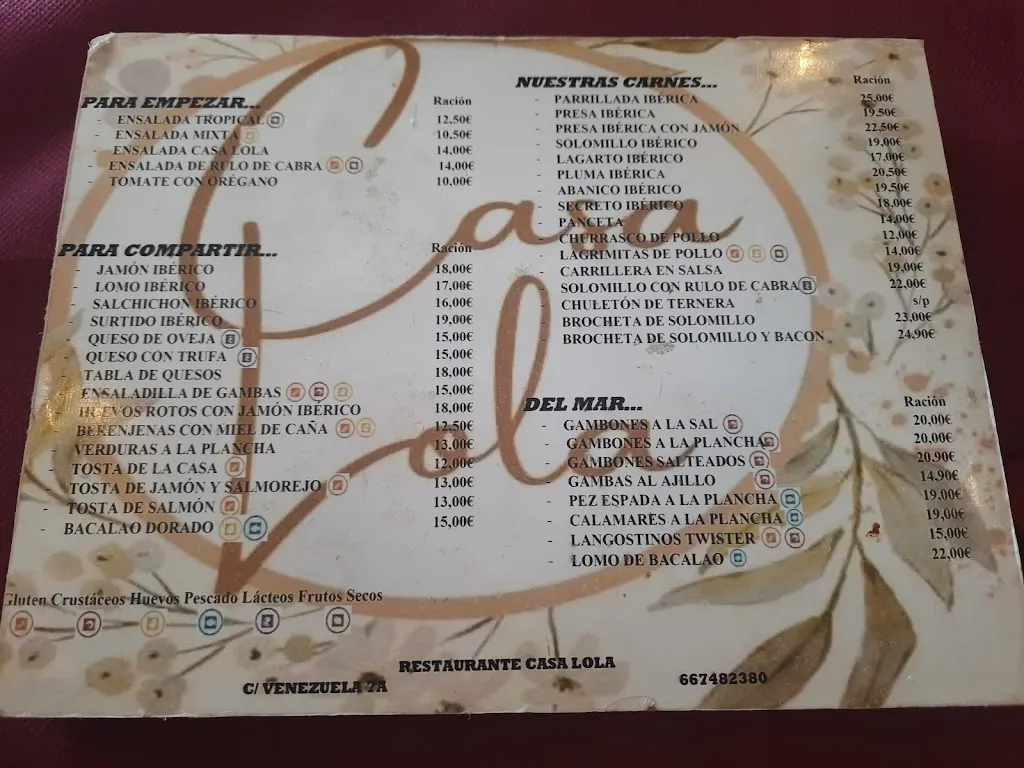 Casa Lola
PARA EMPEZAR... Ración
- ENSALADA TROPICAL 12,50€
- ENSALADA MIXTA 10,50€
- ENSALADA CASA LOLA 14,00€
- ENSALADA DE RULO DE CABRA 14,00€
- TOMATE CON ORÉGANO 10,00€
PARA COMPARTIR... Ración
- JAMÓN IBÉRICO 18,00€
- LOMO IBÉRICO 17,00€
- SALCHICHON IBÉRICO 16,00€
- SURTIDO IBÉRICO 19,00€
- QUESO DE OVEJA 15,00€
- QUESO CON TRUFA 15,00€
- TABLA DE QUESOS 18,00€
- ENSALADILLA DE GAMBAS 15,00€
- HUEVOS ROTOS CON JAMÓN IBÉRICO 18,00€
- BERENJENAS CON MIEL DE CAÑA 12,50€
- VERDURAS A LA PLANCHA 13,00€
- TOSTA DE LA CASA 12,00€
- TOSTA DE JAMÓN Y SALMOREJO 13,00€
- TOSTA DE SALMÓN 13,00€
- BACALAO DORADO 15,00€
Gluten Crustáceos Huevos Pescado Lácteos Frutos Secos
NUESTRAS CARNES... Ración
- PARRILLADA IBÉRICA 25,00€
- PRESA IBÉRICA 19,50€
- PRESA IBÉRICA CON JAMÓN 22,50€
- SOLOMILLO IBÉRICO 19,00€
- LAGARTO IBÉRICO 17,00€
- PLUMA IBÉRICA 20,50€
- ABANICO IBÉRICO 19,50€
- SECRETO IBÉRICO 18,00€
- PANCETA 14,00€
- CHURRASCO DE POLLO 12,00€
- LAGRIMITAS DE POLLO 14,00€
- CARRILLERA EN SALSA 19,00€
- SOLOMILLO CON RULO DE CABRA 22,00€
- CHULETÓN DE TERNERA s/p
- BROCHETA DE SOLOMILLO 23,00€
- BROCHETA DE SOLOMILLO Y BACON 24,90€
DEL MAR... Ración
- GAMBONES A LA SAL 20,00€
- GAMBONES A LA PLANCHA 20,00€
- GAMBONES SALTEADOS 20,90€
- GAMBAS AL AJILLO 14,90€
- PEZ ESPADA A LA PLANCHA 19,00€
- CALAMARES A LA PLANCHA 19,00€
- LANGOSTINOS TWISTER 15,00€
- LOMO DE BACALAO 22,00€
RESTAURANTE CASA LOLA
C/ VENEZUELA 7A 667482380